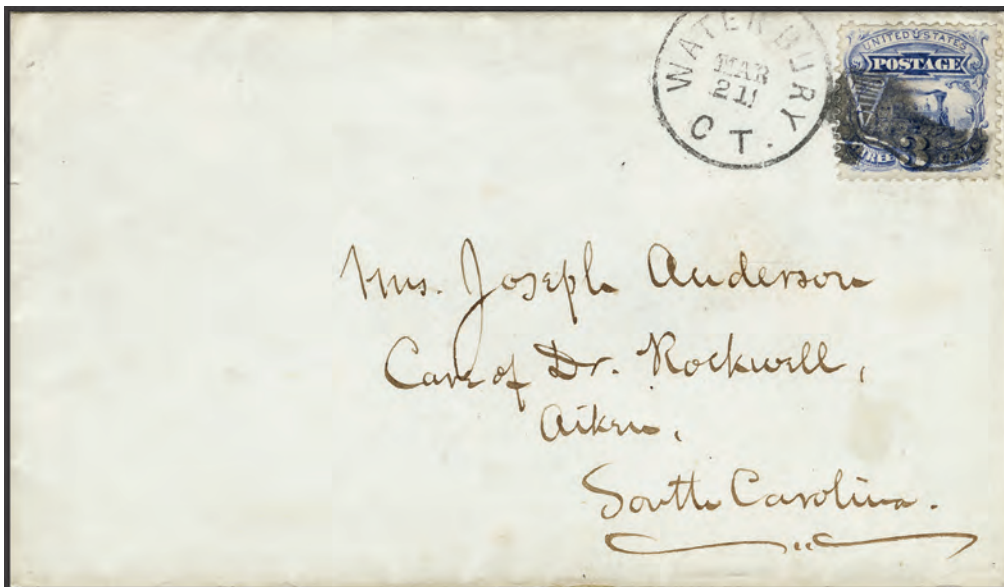 WATERBURY
MAR
21
CT.
UNITED STATES
POSTAGE
THREE 3 CENTS
Mrs. Joseph Anderson
Care of Dr. Rockwell,
Aiken,
South Carolina.